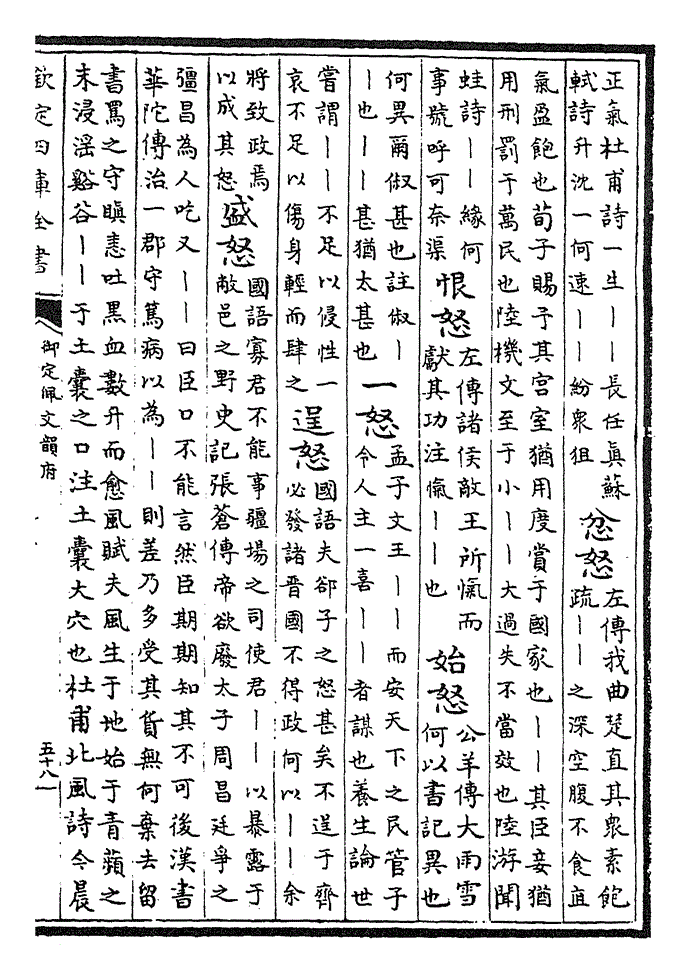 正氣杜甫詩一生丨丨長任眞蘇
軾詩升沈一何速丨丨紛衆狙
忿怒
左傳我曲楚直其衆素飽
疏丨丨之深空腹不食直
氣盈飽也荀子賜予其宮室猶用度賞于國家也丨丨其臣妾猶
用刑罰于萬民也陸機文至于小丨丨大過失不當效也陸游聞
蛙詩丨丨緣何
事號呼可奈渠
恨怒
左傳諸侯敵王所愾而
獻其功注愾丨丨也
始怒
公羊傳大雨雪
何以書記異也
何異爾俶甚也註俶丨
丨也丨丨甚猶太甚也
一怒
孟子文王丨丨而安天下之民管子
令人主一喜丨丨者謀也養生論世
嘗謂丨丨不足以侵性一
哀不足以傷身輕而肆之
逞怒
國語夫郤子之怒甚矣不逞于齊
必發諸晉國不得政何以丨丨余
將致政焉
以成其怒
盛怒
國語寡君不能事疆場之司使君丨丨以暴露于
敝邑之野史記張蒼傳帝欲廢太子周昌廷爭之
彊昌為人吃又丨丨曰臣口不能言然臣期期知其不可後漢書
華陀傳治一郡守篤病以為丨丨則差乃多受其貨無何棄去留
書罵之守瞋恚吐黑血數升而愈風賦夫風生于地始于青蘋之
末浸淫谿谷丨丨于土囊之口注土囊大穴也杜甫北風詩今晨
欽定四庫全書
御定佩文韻府
五十八